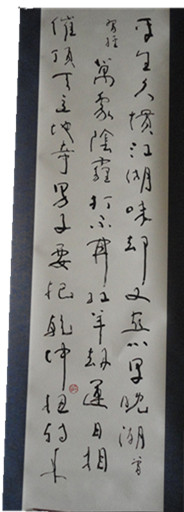 平生久慣江湖味却又晚潮
萬象陰霾打不開紅羊劫運日相
催頂天立地奇男子要把乾坤扭轉來